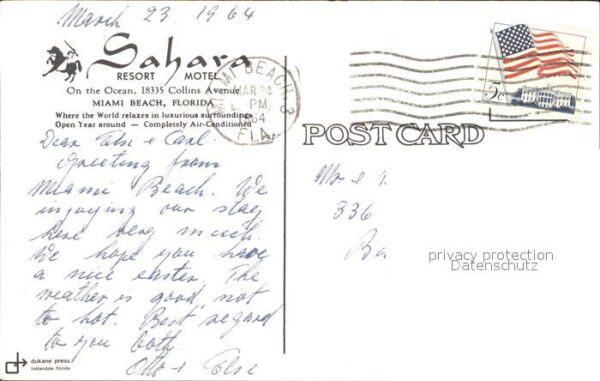 March 23, 1964
Sahara
RESORT MOTEL
On the Ocean, 18335 Collins Avenue
MIAMI BEACH, FLORIDA
Where the World relaxes in luxurious surroundings
Open Year around — Completely Air-Conditioned
MIAMI BEACH 3
MAR 24
PM
1964
FLA.
5c
POST CARD
Dear Else & Carl.
Greeting from
Miami Beach. We
injoying our stay
here very much.
We hope you have
a nice easter. The
weather is good, not
to hot. Best regard
to you both.
Otto & Else
Mr &
336
Be
privacy protection
Datenschutz
dukane press
hallandale florida